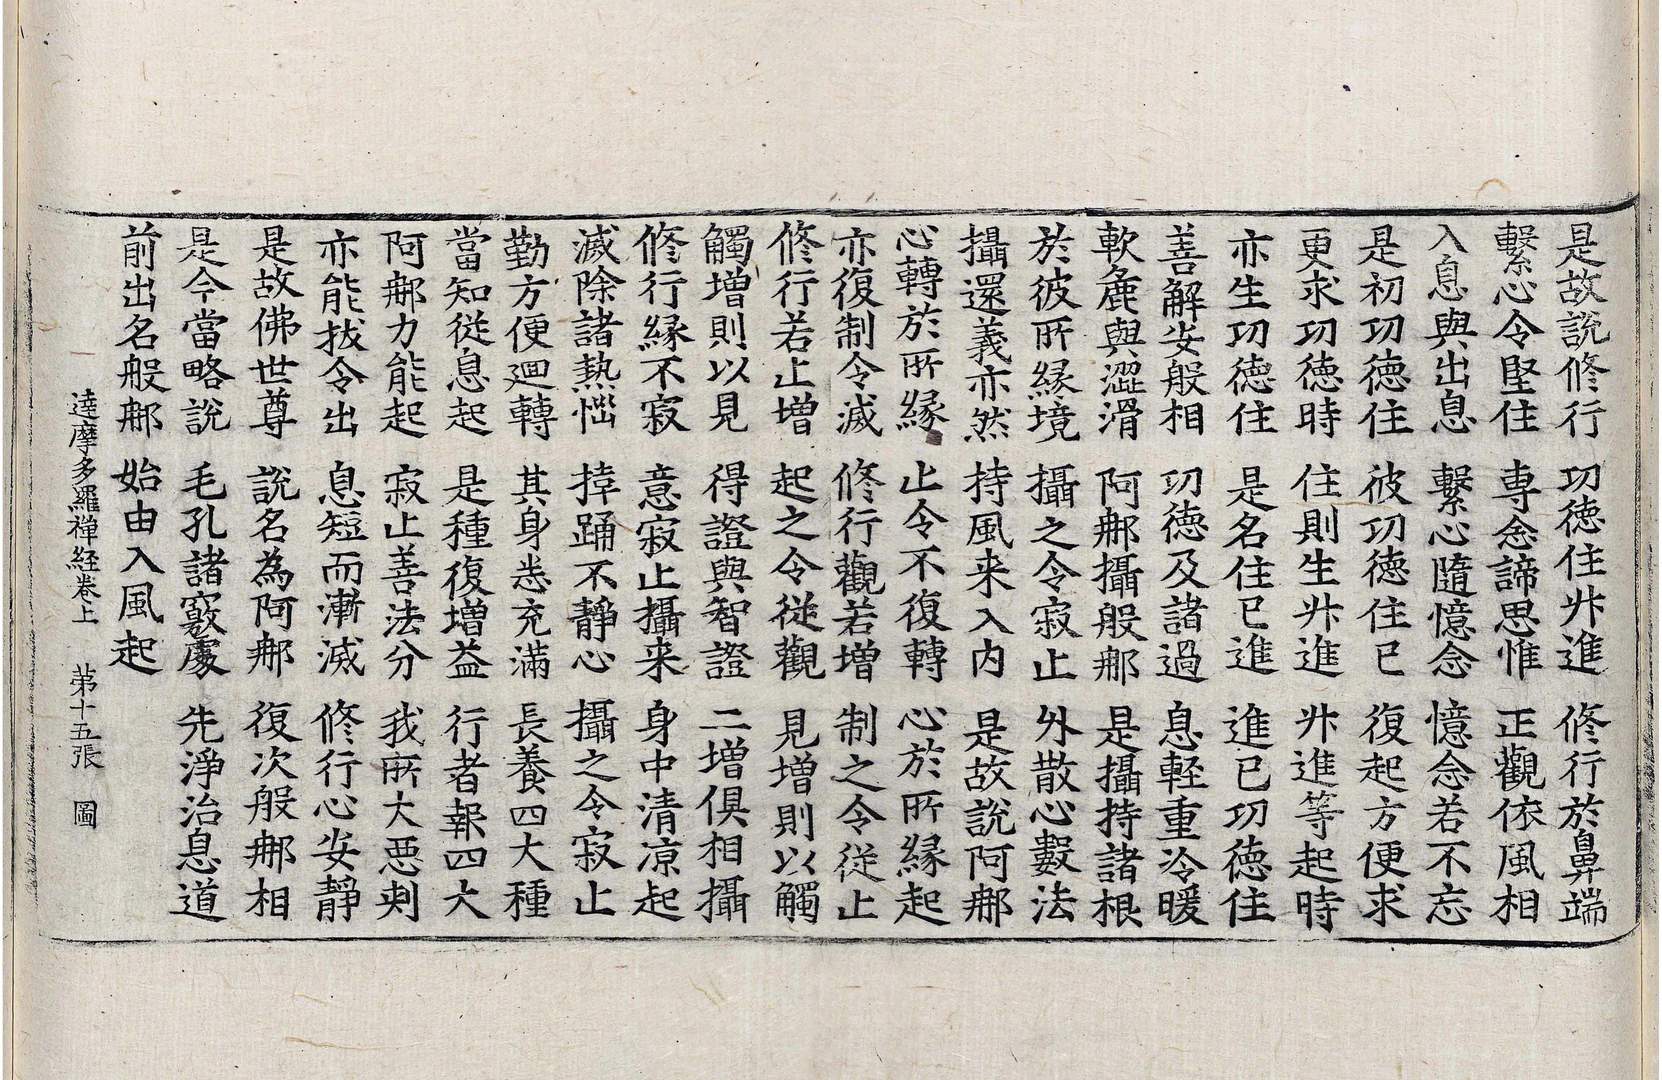 是故說修行 功德住升進 修行於鼻端
繫心令堅住 専念諦思惟 正觀依風相
入息與出息 繫心隨憶念 憶念若不忘
是初功德住 彼功德住已 復起方便求
更求功德時 住則生升進 升進等起時
亦生功德住 是名住已進 進已功德住
善解安般相 功德及諸過 息軽重冷暖
軟麁與澀滑 阿那攝般那 是攝持諸根
於彼所緣境 攝之令寂止 外散心數法
攝還義亦然 持風来入内 是故說阿那
心轉於所緣 止令不復轉 心於所緣起
亦復制令滅 修行觀若增 制之令從止
修行若止增 起之令從觀 見增則以觸
觸增則以見 得證與智證 二增俱相攝
修行緣不寂 意寂止攝来 身中清凉起
滅除諸熱惱 掉踊不靜心 攝之令寂止
勤方便迴轉 其身悉充滿 長養四大種
當知從息起 是種復增益 行者報四大
阿那力能起 寂止善法分 我所大惡刺
亦能拔令出 息短而漸滅 修行心安靜
是故佛世尊 說名為阿那 復次般那相
是今當略說 毛孔諸竅處 先淨治息道
前出名般那 始由入風起
達摩多羅禪経卷上 第十五張 圖